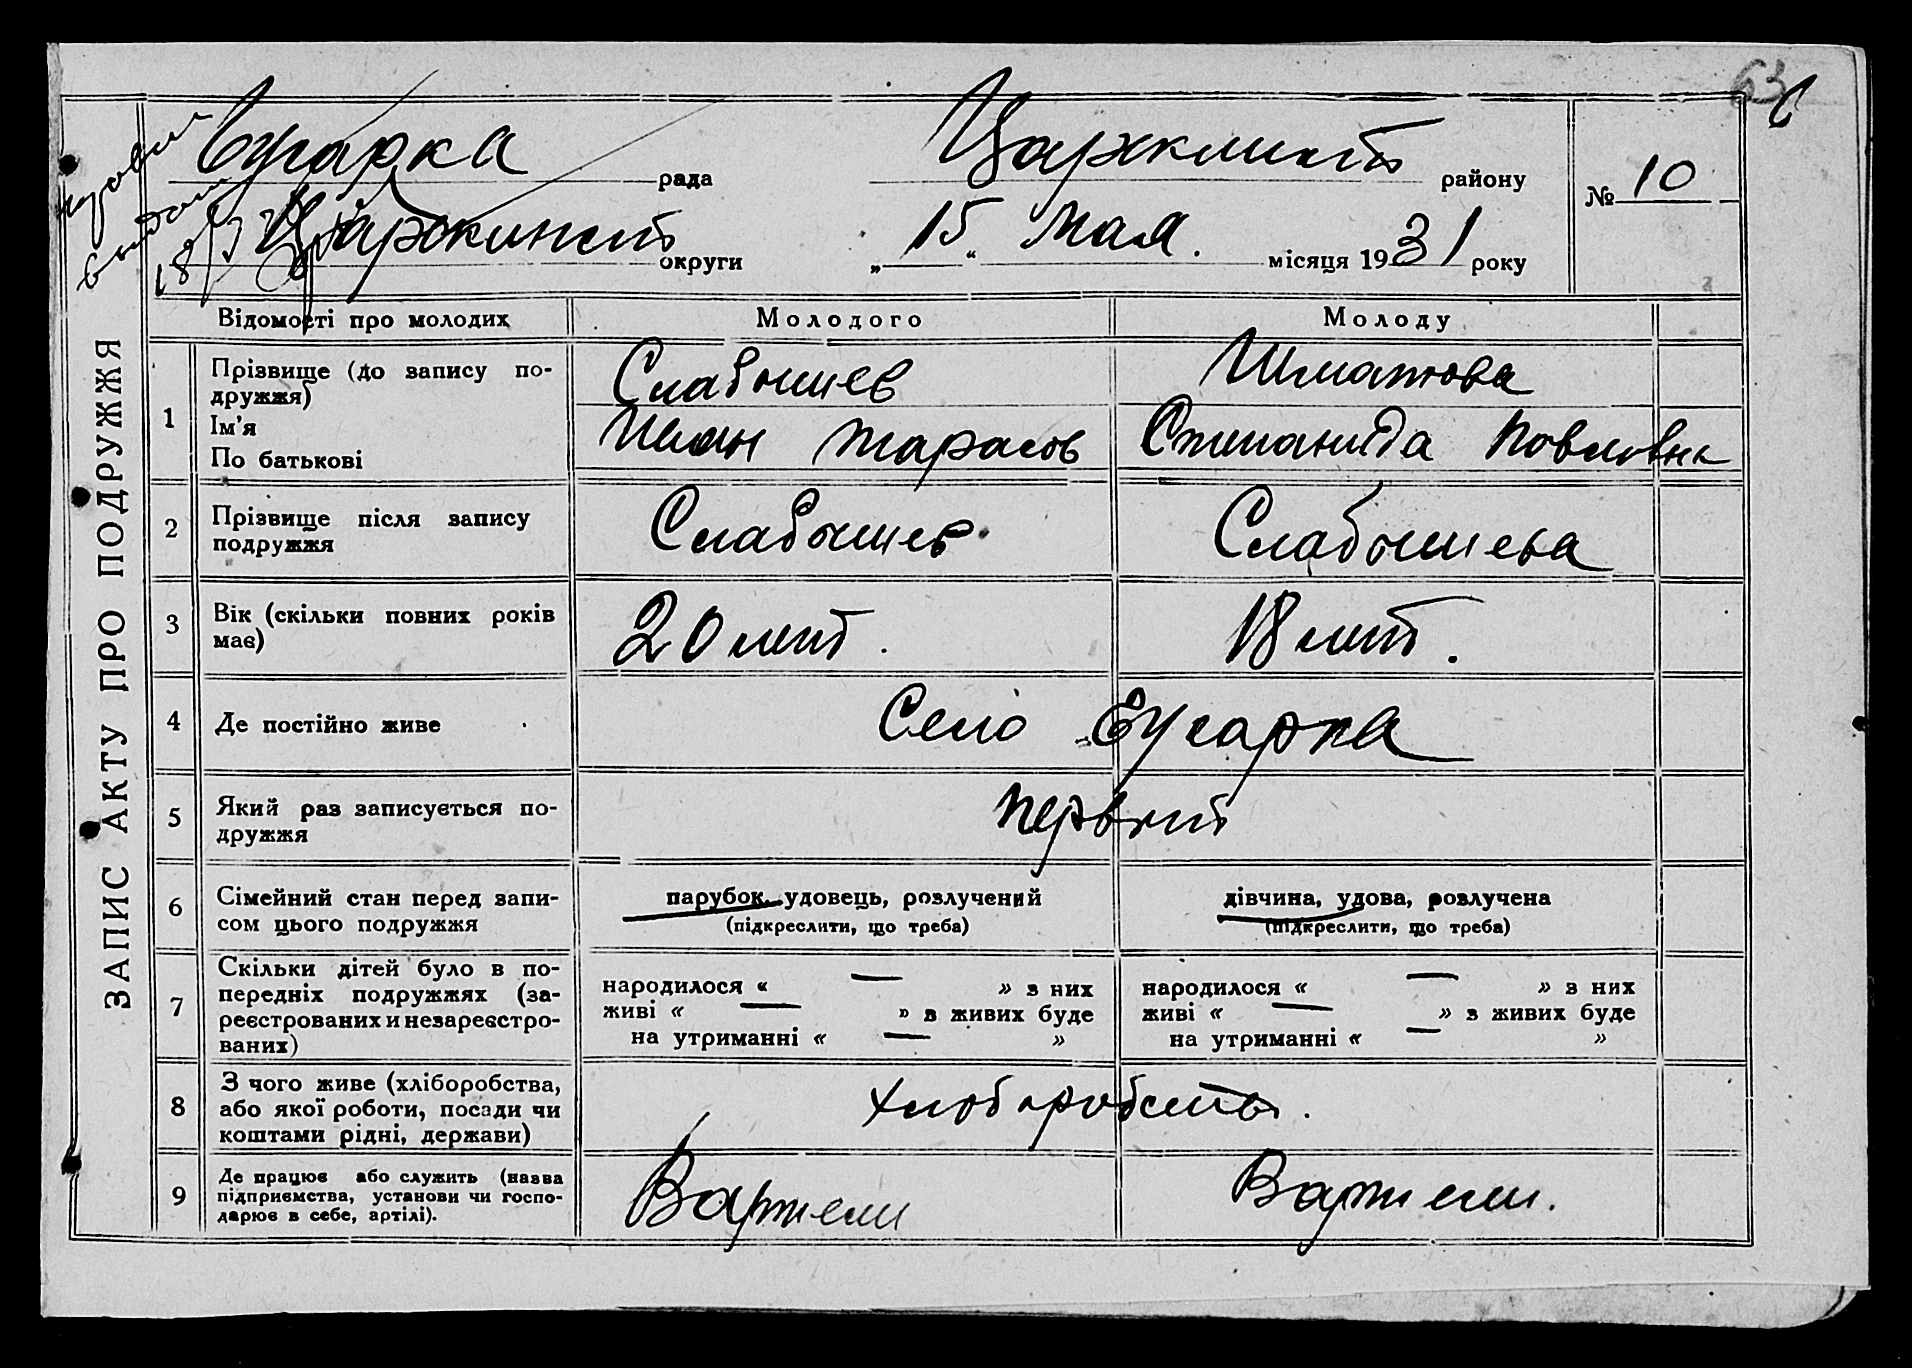 63
Бугарка рада
района № 10
округи „15“ Мая. місяця 1931 року
ЗАПИС АКТУ ПРО ПОДРУЖЖЯ
Відомості про молодих Молодого Молоду
1 Прізвище (до запису подружжя) Слабышев Шматова
Ім'я
По батькові Иван Тарасов Степанида Повловна
2 Прізвище після запису подружжя Слабышев Слабышева
3 Вік (скільки повних років має) 20 лет. 18 лет.
4 Де постійно живе Село Бугарка
5 Який раз записується подружжя Первый
6 Сімейний стан перед записом цього подружжя парубок, удовець, розлучений дівчина, удова, розлучена
(підкреслити, що треба) (підкреслити, що треба)
7 Скільки дітей було в попередніх подружжях (зареєстрованих и незареєстрованих)
народилося « — » з них народилося « — » з них
живі « — » в живих буде живі « — » з живих буде
на утриманні « — » на утриманні « — »
8 З чого живе (хліборобства, або якої роботи, посади чи коштами рідні, держави)
9 Де працює або служить (назва підприємства, установи чи господарює в себе, артілі). Вартели Вартели.